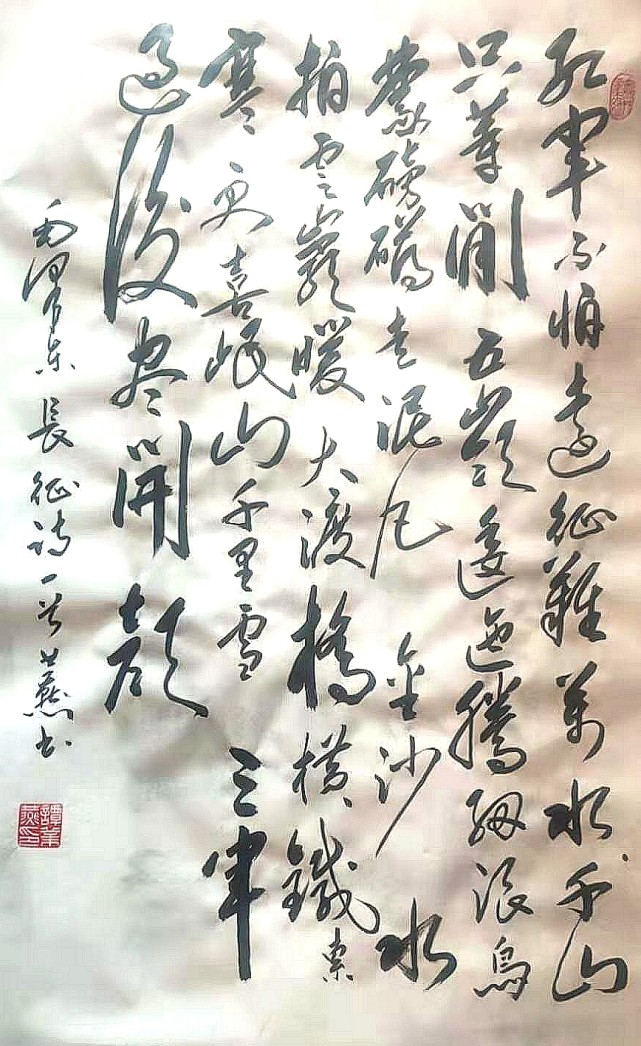 紅軍不怕遠征難萬水千山
只等閑五嶺逶迤騰細浪烏
蒙磅礴走泥丸金沙水
拍雲崖暖大渡橋橫鐵索
寒更喜岷山千里雪三軍
過後尽開顏
毛澤东長征诗一首燕书